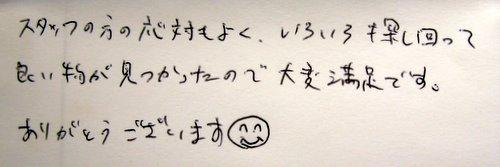 スタッフの方の応対もよく、いろいろ探し回って
良い物が見つかったので大変満足です。
ありがとうございます